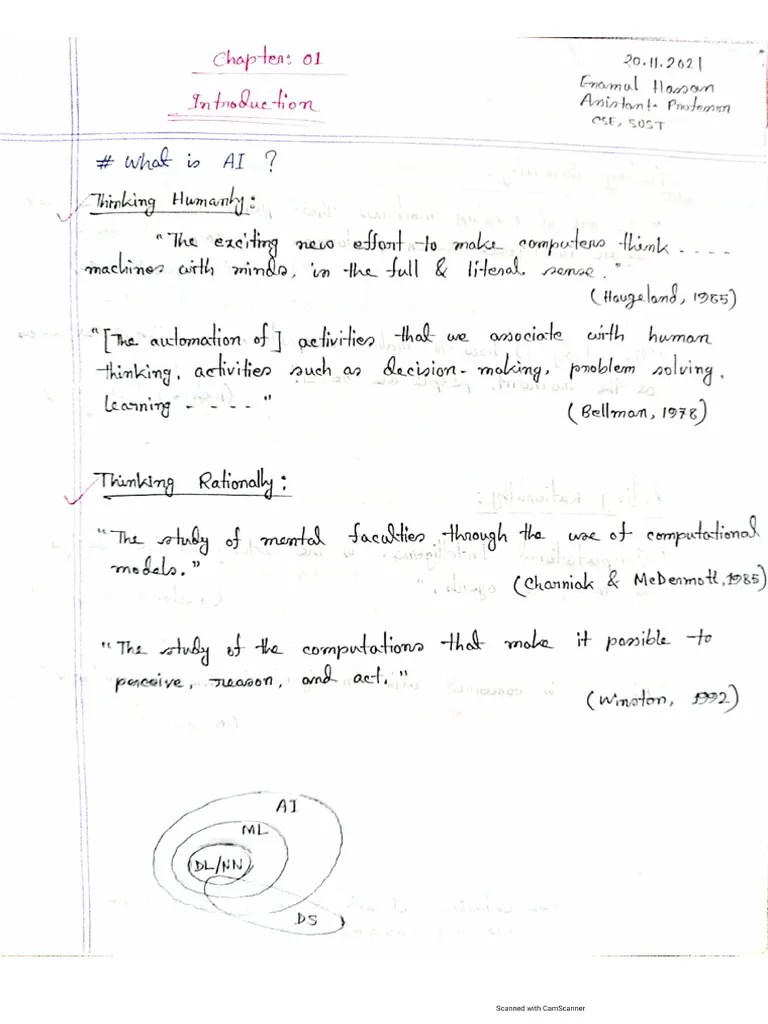 Chapter: 01
Introduction
20.11.2021
Enamul Hassan
Assistant Professor
CSE, SUST
# What is AI ?
Thinking Humanly:
"The exciting new effort to make computers think ....
machines with minds, in the full & literal sense."
(Haugeland, 1985)
"[The automation of] activities that we associate with human
thinking, activities such as decision-making, problem solving,
learning ...."
(Bellman, 1978)
Thinking Rationally:
"The study of mental faculties through the use of computational
models."
(Charniak & McDermott, 1985)
"The study of the computations that make it possible to
perceive, reason, and act."
(Winston, 1992)
AI
ML
DL/NN
DS
Scanned with CamScanner